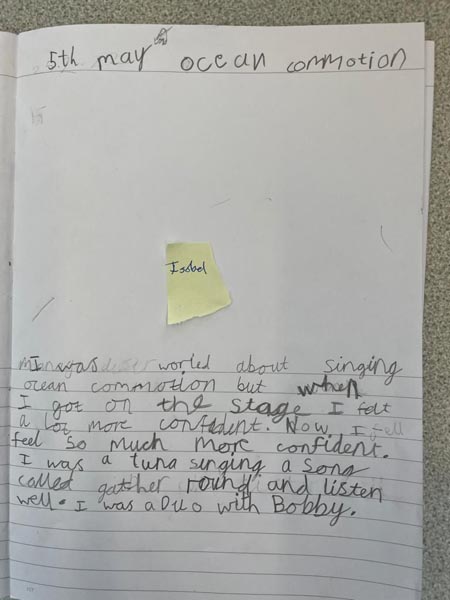 5th may ocean commotion
Isobel
I was worled about singing
ocean commotion but when
I got on the stage I felt
a lot more confident. Now, I fell
feel so much more confident.
I was a tuna singing a song
called gather round and listen
well. I was a Duo with Bobby.